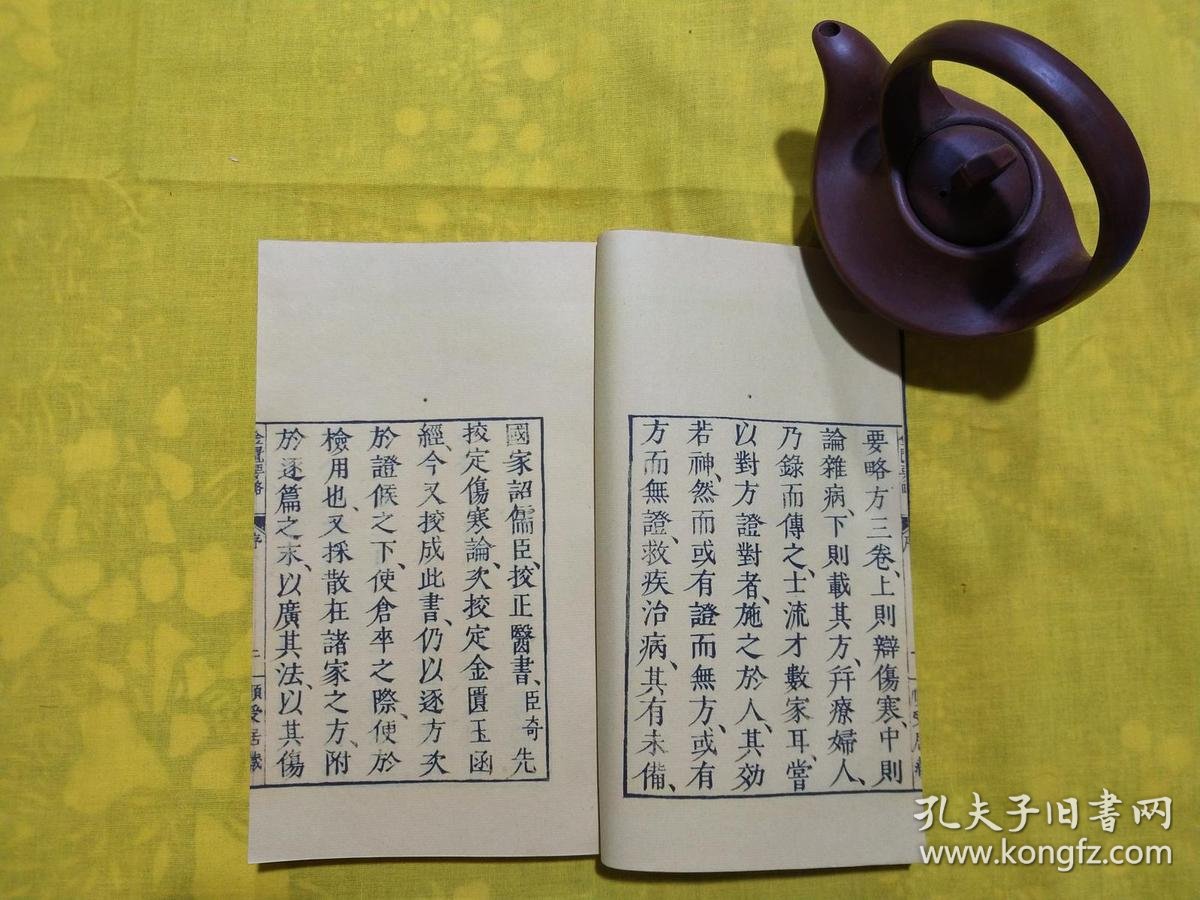 要略方三卷、上則辯傷寒、中則
論雜病、下則載其方、并療婦人、
乃錄而傳之、士流才數家耳、嘗
以對方證對者、施之於人、其効
若神、然而或有證而無方、或有
方而無證、救疾治病、其有未備、
國家詔儒臣、挍正醫書、臣奇先
挍定傷寒論、次挍定金匱玉函
經、今又挍成此書、仍以逐方次
於證候之下、使倉卒之際、便於
檢用也、又採散在諸家之方、附
於逐篇之末、以廣其法、以其傷
金匱要略 序 二 願受居藏
孔夫子旧书网
www.kongfz.com